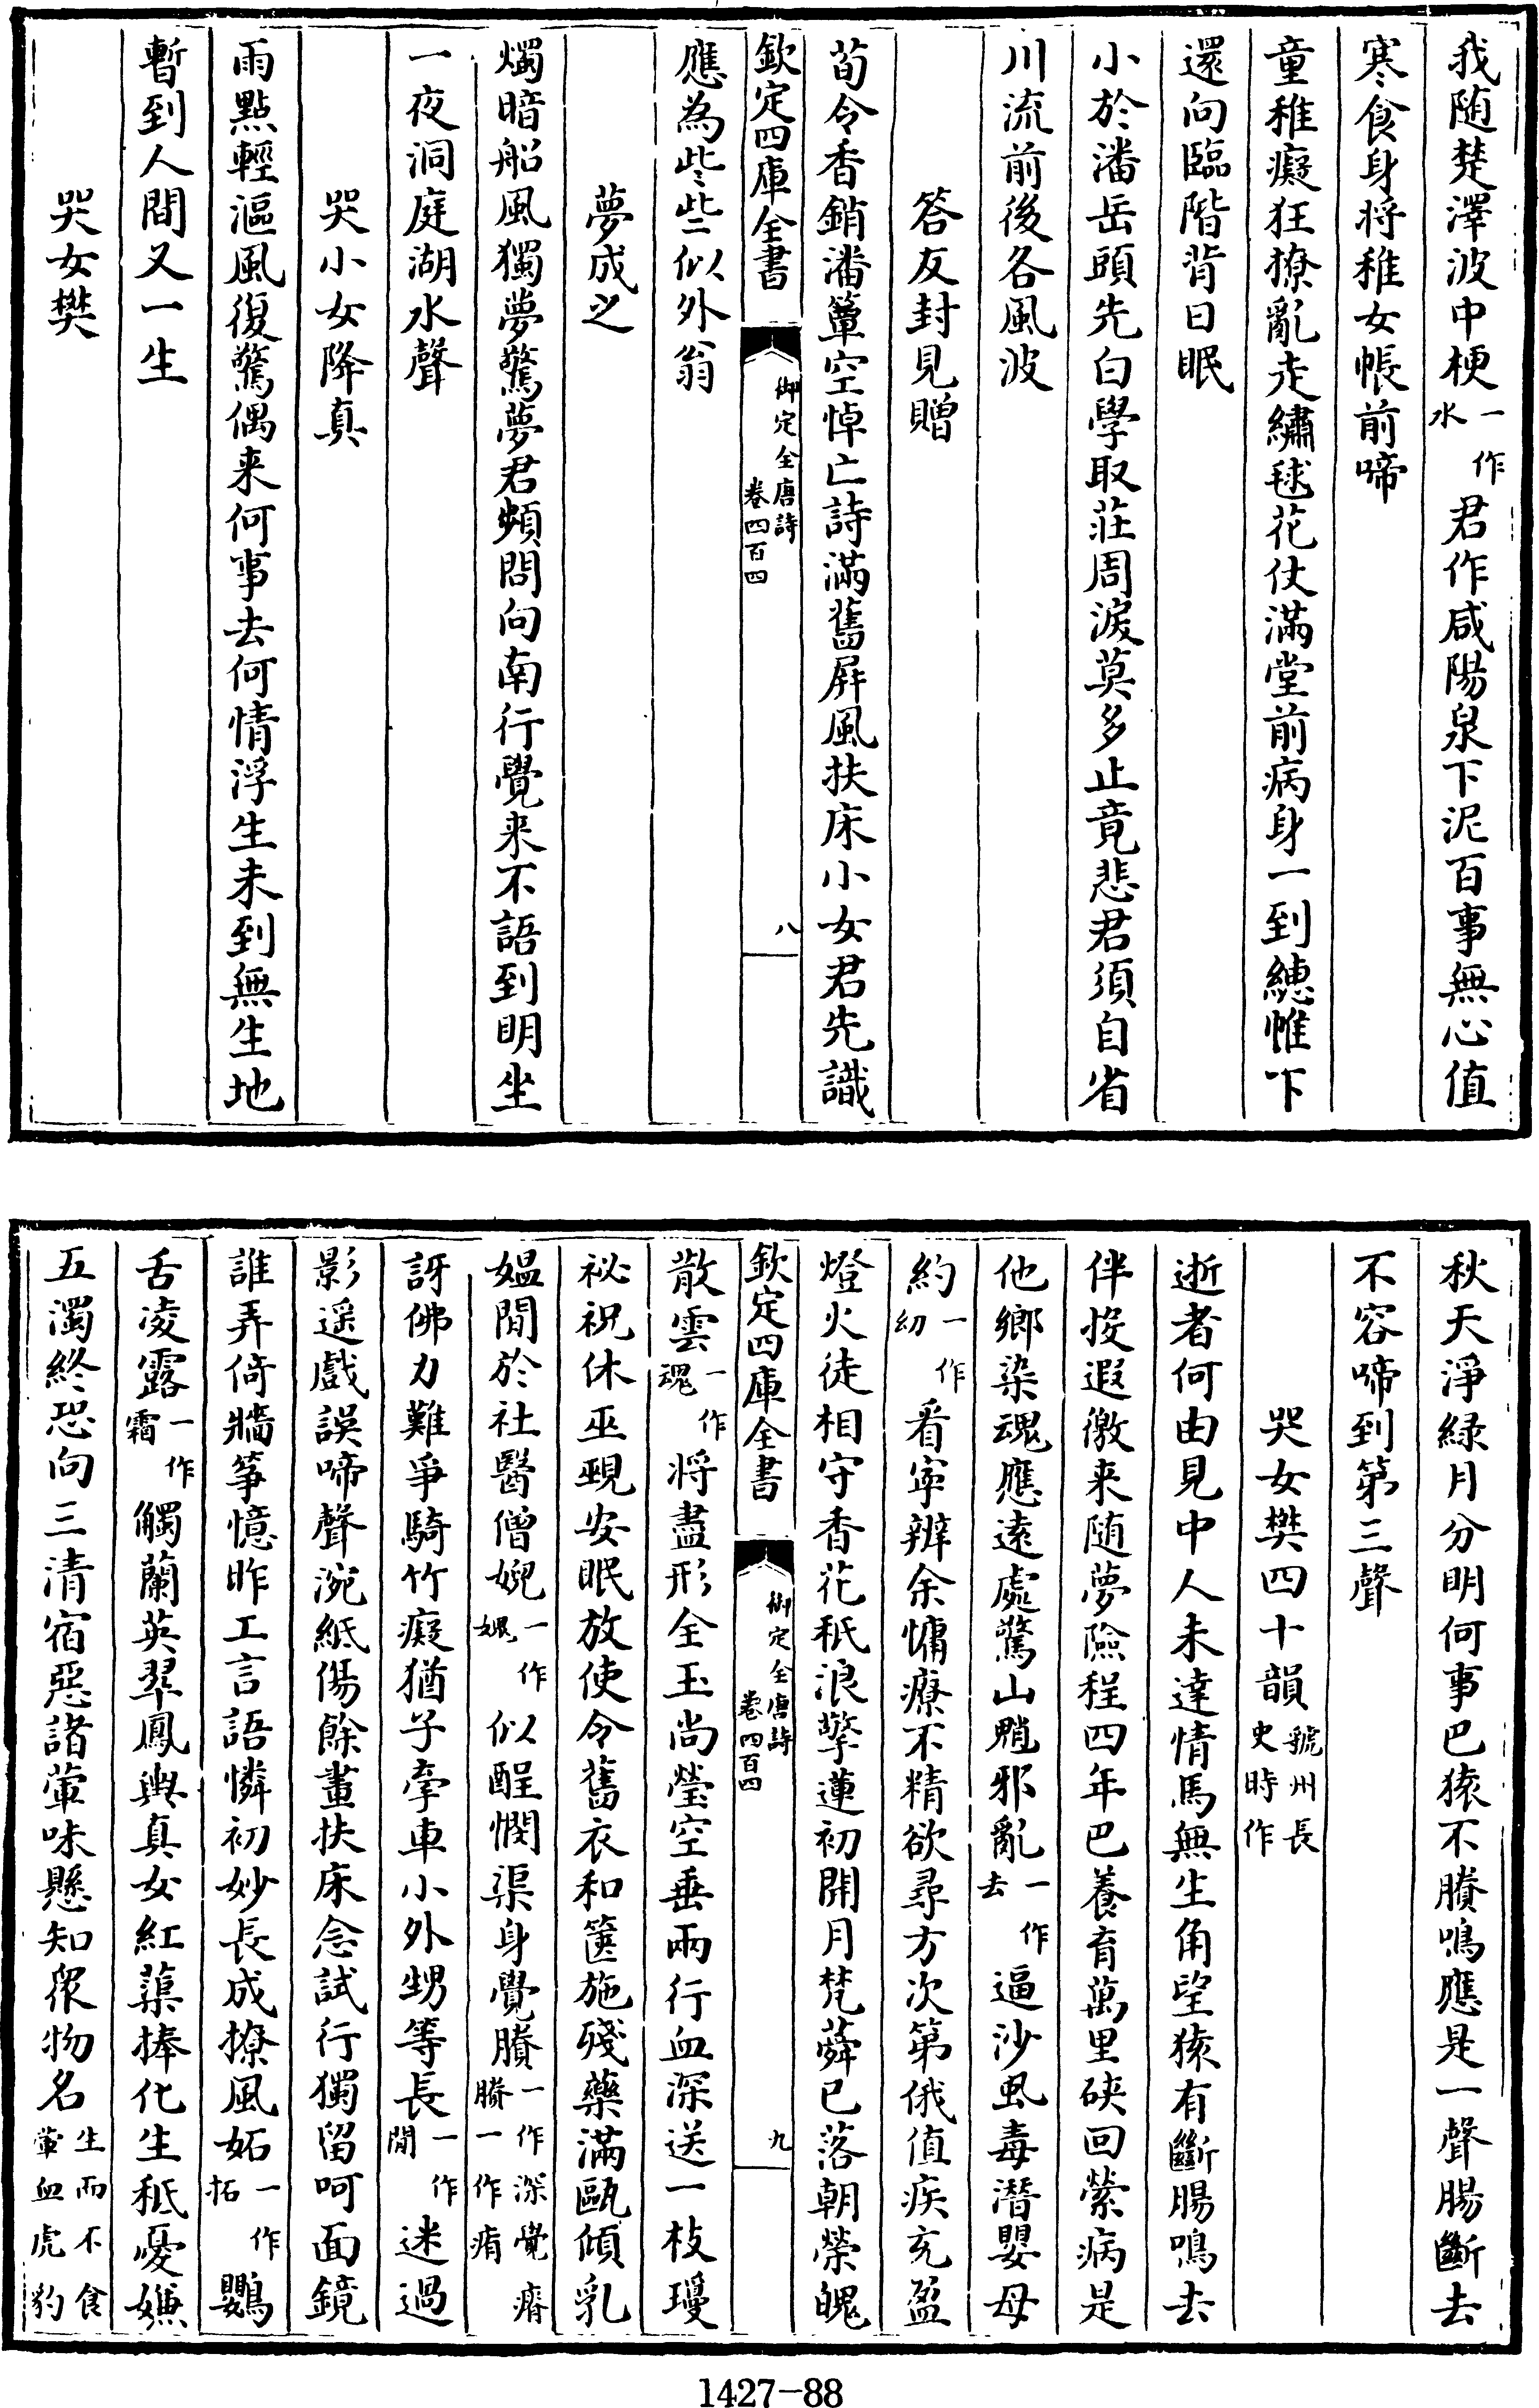 我随楚澤波中梗一作水君作咸陽泉下泥百事無心值
寒食身將稚女帳前啼
童稚癡狂撩亂走繡毬花仗滿堂前病身一到繐帷下
還向臨階背日眠
小於潘岳頭先白學取莊周淚莫多止竟悲君須自省
川流前後各風波
答友封見贈
荀令香銷潘簟空悼亡詩滿舊屏風扶床小女君先識
欽定四庫全書
御定全唐詩
卷四百四
八
應為些些似外翁
夢成之
燭暗船風獨夢驚夢君頻問向南行覺来不語到明坐
一夜洞庭湖水聲
哭小女降真
雨點輕漚風復驚偶来何事去何情浮生未到無生地
暫到人間又一生
哭女樊
秋天淨緑月分明何事巴猿不賸鳴應是一聲腸斷去
不容啼到第三聲
哭女樊四十韻虢州長史時作
逝者何由見中人未達情馬無生角望猿有斷腸鳴去
伴投遐徼来随夢險程四年巴養育萬里硤回縈病是
他鄉染魂應遠處驚山魈邪亂一作去逼沙虱毒潛嬰母
約一作幼看寧辨余慵療不精欲尋方次第俄值疾充盈
燈火徒相守香花秖浪擎蓮初開月梵蕣已落朝榮魄
欽定四庫全書
御定全唐詩
卷四百四
九
散雲一作魂將盡形全玉尚瑩空垂兩行血深送一枝瓊
祕祝休巫覡安眠放使令舊衣和篋施殘藥滿甌傾乳
媪閒於社醫僧婗一作媿似酲憫渠身覺賸一作深覺瘠賸一作痟
訝佛力難爭騎竹癡猶子牽車小外甥等長一作閒迷過
影遥戲誤啼聲涴紙傷餘畫扶床念試行獨留呵面鏡
誰弄倚牆筝憶昨工言語憐初妙長成撩風妬一作拓鸚
舌凌露一作霜觸蘭英翠鳳輿真女紅蕖捧化生秪憂嫌
五濁終恐向三清宿惡諸葷味懸知衆物名生而不食葷血虎豹
1427-88